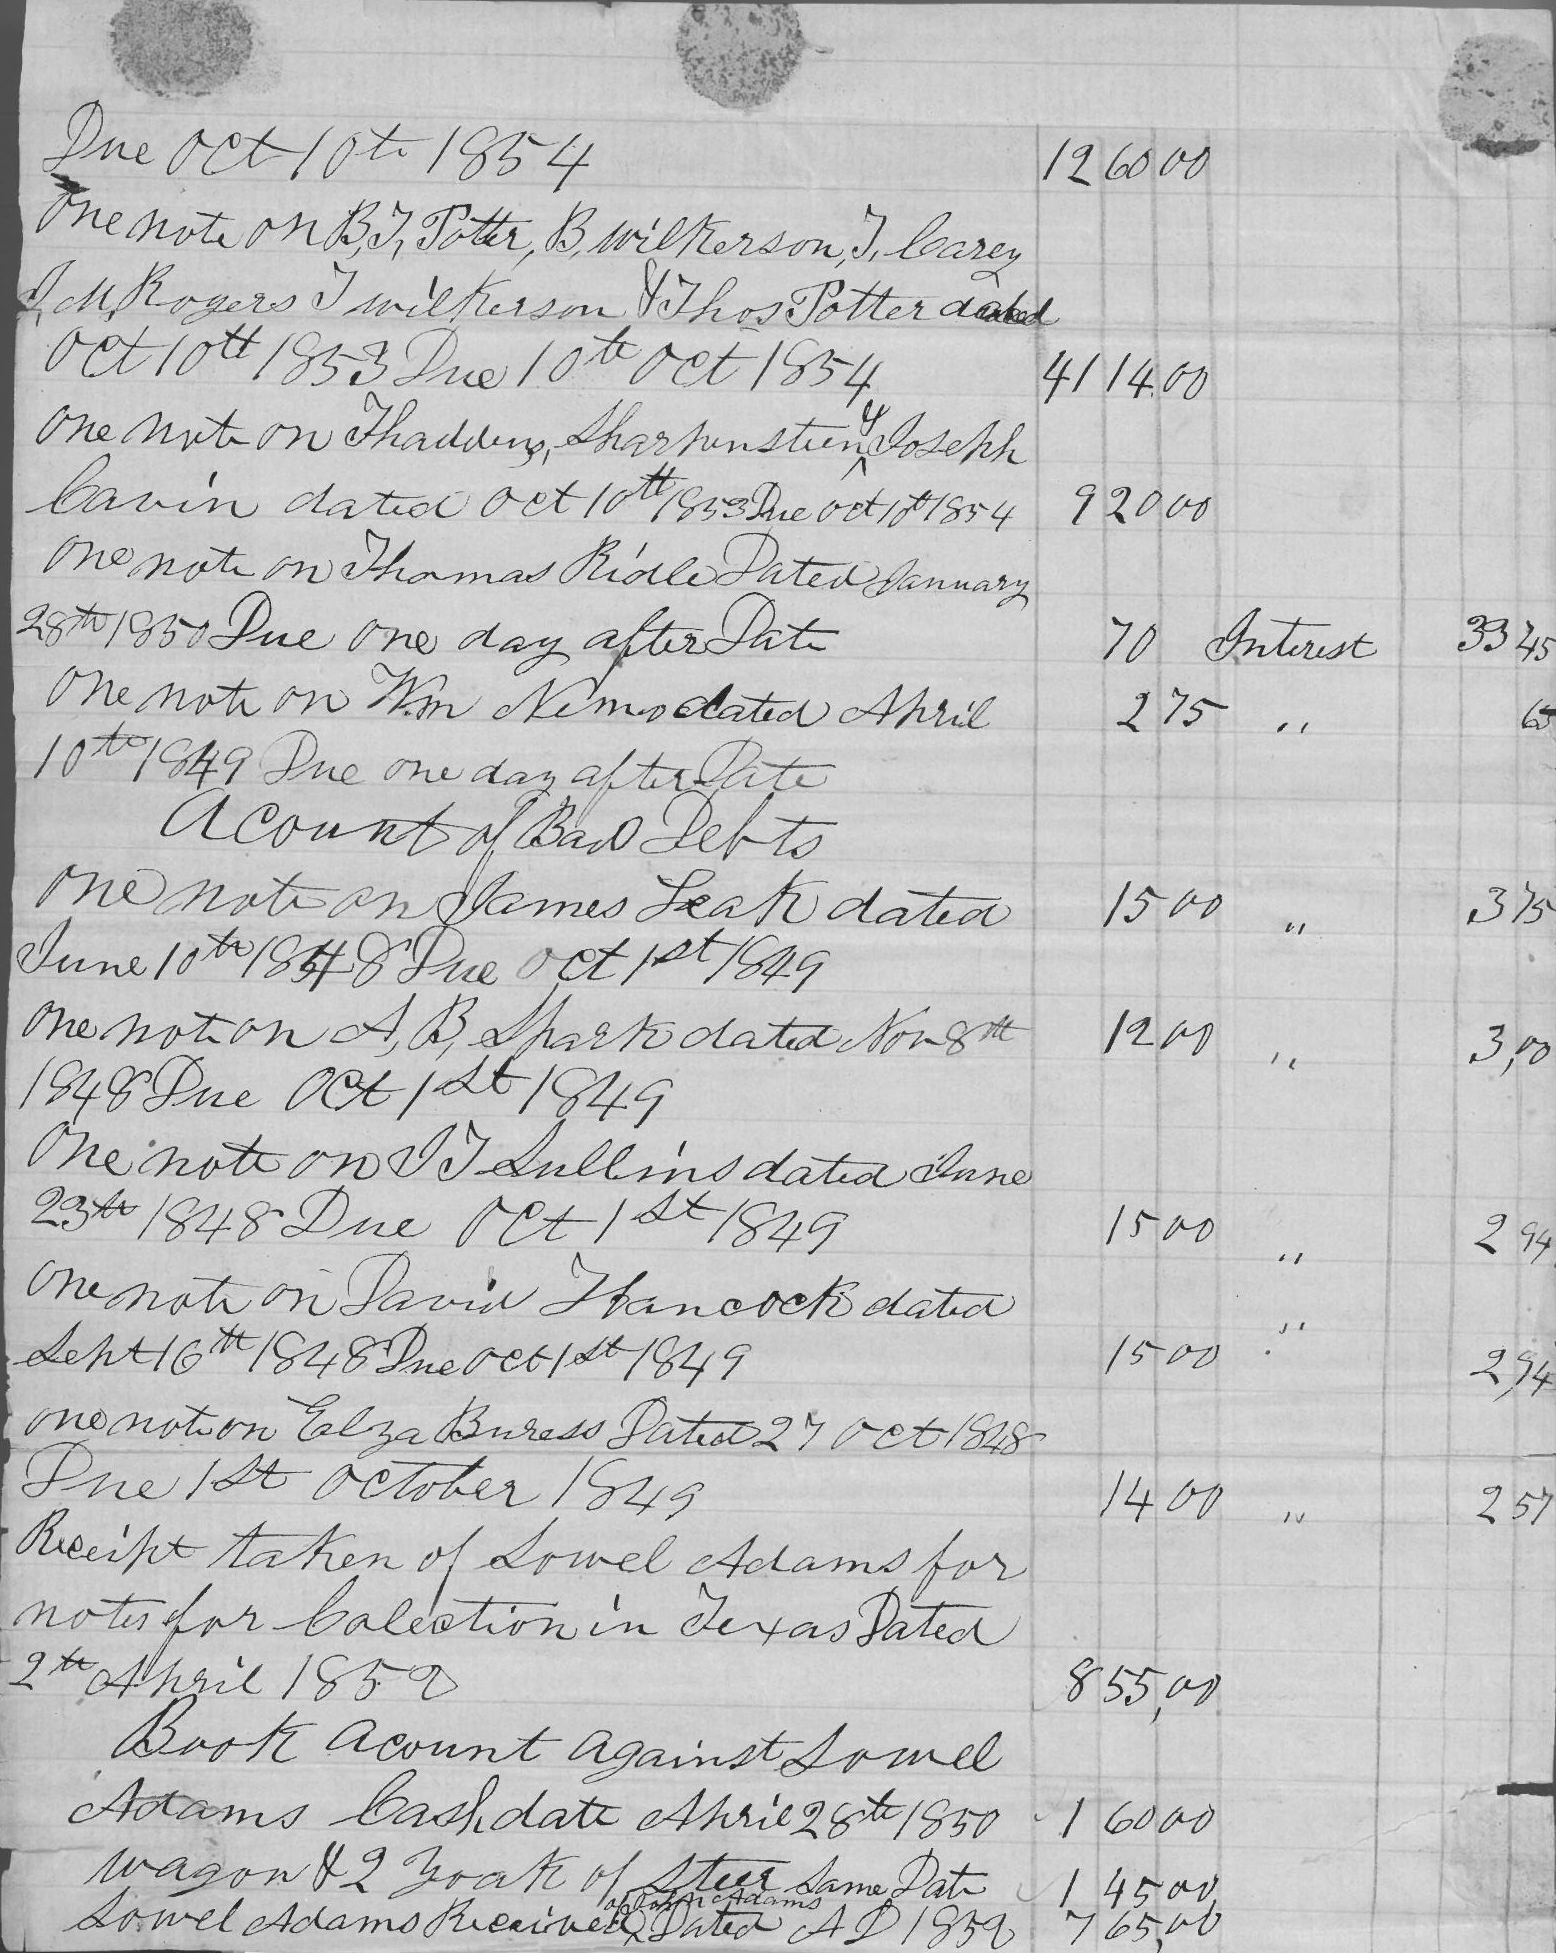 Due Oct 10th 1854 1260 00
One note on B, T, Potter, B, Wilkerson, T, Carey
J, M, Rogers T Wilkerson & Thos Potter dated
Oct 10th 1853 Due 10th Oct 1854 4114.00
One note on Thaddeus, Sharpenstien & Joseph
Cavin dated Oct 10th 1853 Due Oct 10th 1854 920 00
One note on Thomas Ridle Dated January
28th 1850 Due one day after Date 70 Interest 33 45
One note on Wm Nimo dated April 2 75 " 65
10th 1849 Due one day after Date
Acount of Bad Debts
One note on James Leak dated 15 00 " 3 75
June 10th 1848 Due Oct 1st 1849
One note on A, B, Spark dated Nov 8th 12 00 " 3,00
1848 Due Oct 1st 1849
One note on J T Sullins dated June
23th 1848 Due Oct 1st 1849 15 00 " 2 94
One note on David Hancock dated "
Sept 16th 1848 Due Oct 1st 1849 15 00 2,94
one note on Elza Buress Dated 27 Oct 1848
Due 1st October 1849 14 00 " 2 57
Receipt taken of Lowel Adams for
notes for Colection in Texas Dated
2th April 1852 855,00
Book acount against Lowel
Adams Cash date April 28th 1850 160 00
Wagon & 2 Yoak of Steer Same Date 145 00
Lowel Adams Received Dated AD 1852 765,00